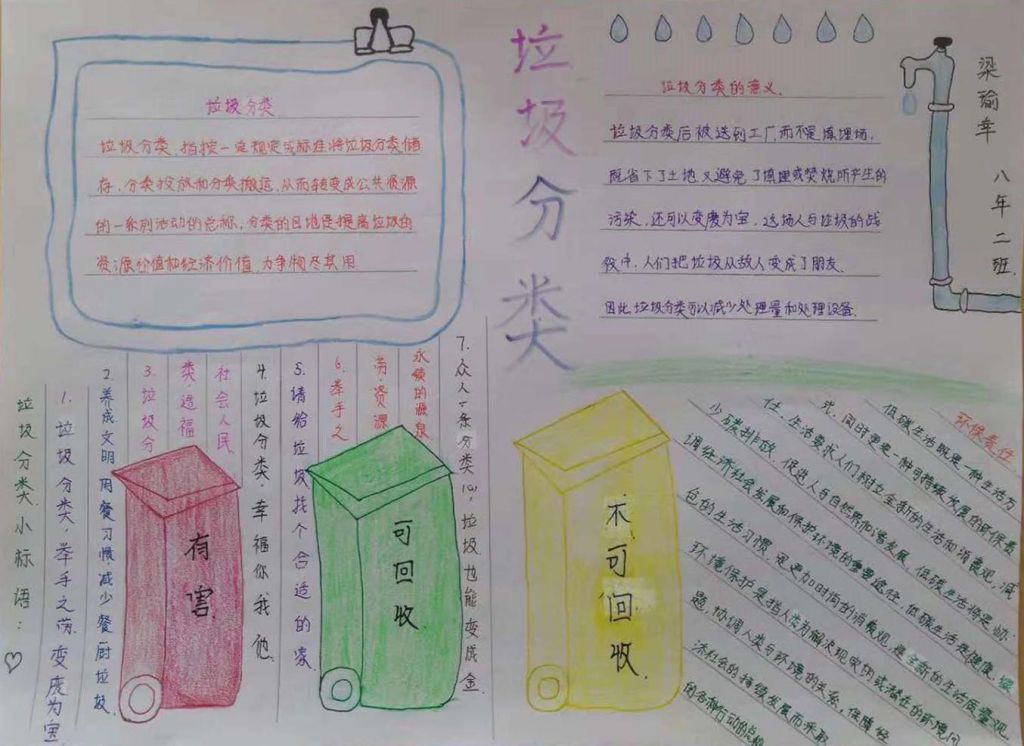 垃圾分类
垃圾分类
垃圾分类,指按一定规定或标准将垃圾分类储
存、分类投放和分类搬运,从而转变成公共资源
的一系列活动的总称,分类的目地是提高垃圾的
资源价值和经济价值,力争物尽其用.
垃圾分类的意义.
垃圾分类后被送到工厂而不是填埋场,
既省下了土地,又避免了填埋或焚烧所产生的
污染,还可以变废为宝.这场人与垃圾的战
役中,人们把垃圾从敌人变成了朋友.
因此,垃圾分类可以减少处理量和处理设备.
梁瑜幸
八年二班.
垃圾分类小标语:
1.垃圾分类,举手之劳,变废为宝
2.养成文明用餐习惯,减少餐厨垃圾.
3.垃圾分
类,造福
社会人民
4.垃圾分类幸福你我他.
5.请给垃圾找个合适的家
6.举手之
劳,资源
永续的源泉
7.众人一条分类心,垃圾也能变成金.
有害
可回收
不可回收
环保责任
低碳生活既是一种生活方
式,同时更是一种可持续发展的环保责
任.生活要求人们树立全新的生活和消费观,减
少碳排放,促进人与自然界和谐发展.低碳生活将是协
调经济社会发展和保护环境的重要途径.低碳生活是健康、绿
色的生活习惯,是更加时尚的消费观,是全新的生活质量观.
环境保护是指人类为解决现实的或潜在的环境问
题,协调人类与环境的关系,保障经
济社会的持续发展而采取
的各种行动的总称